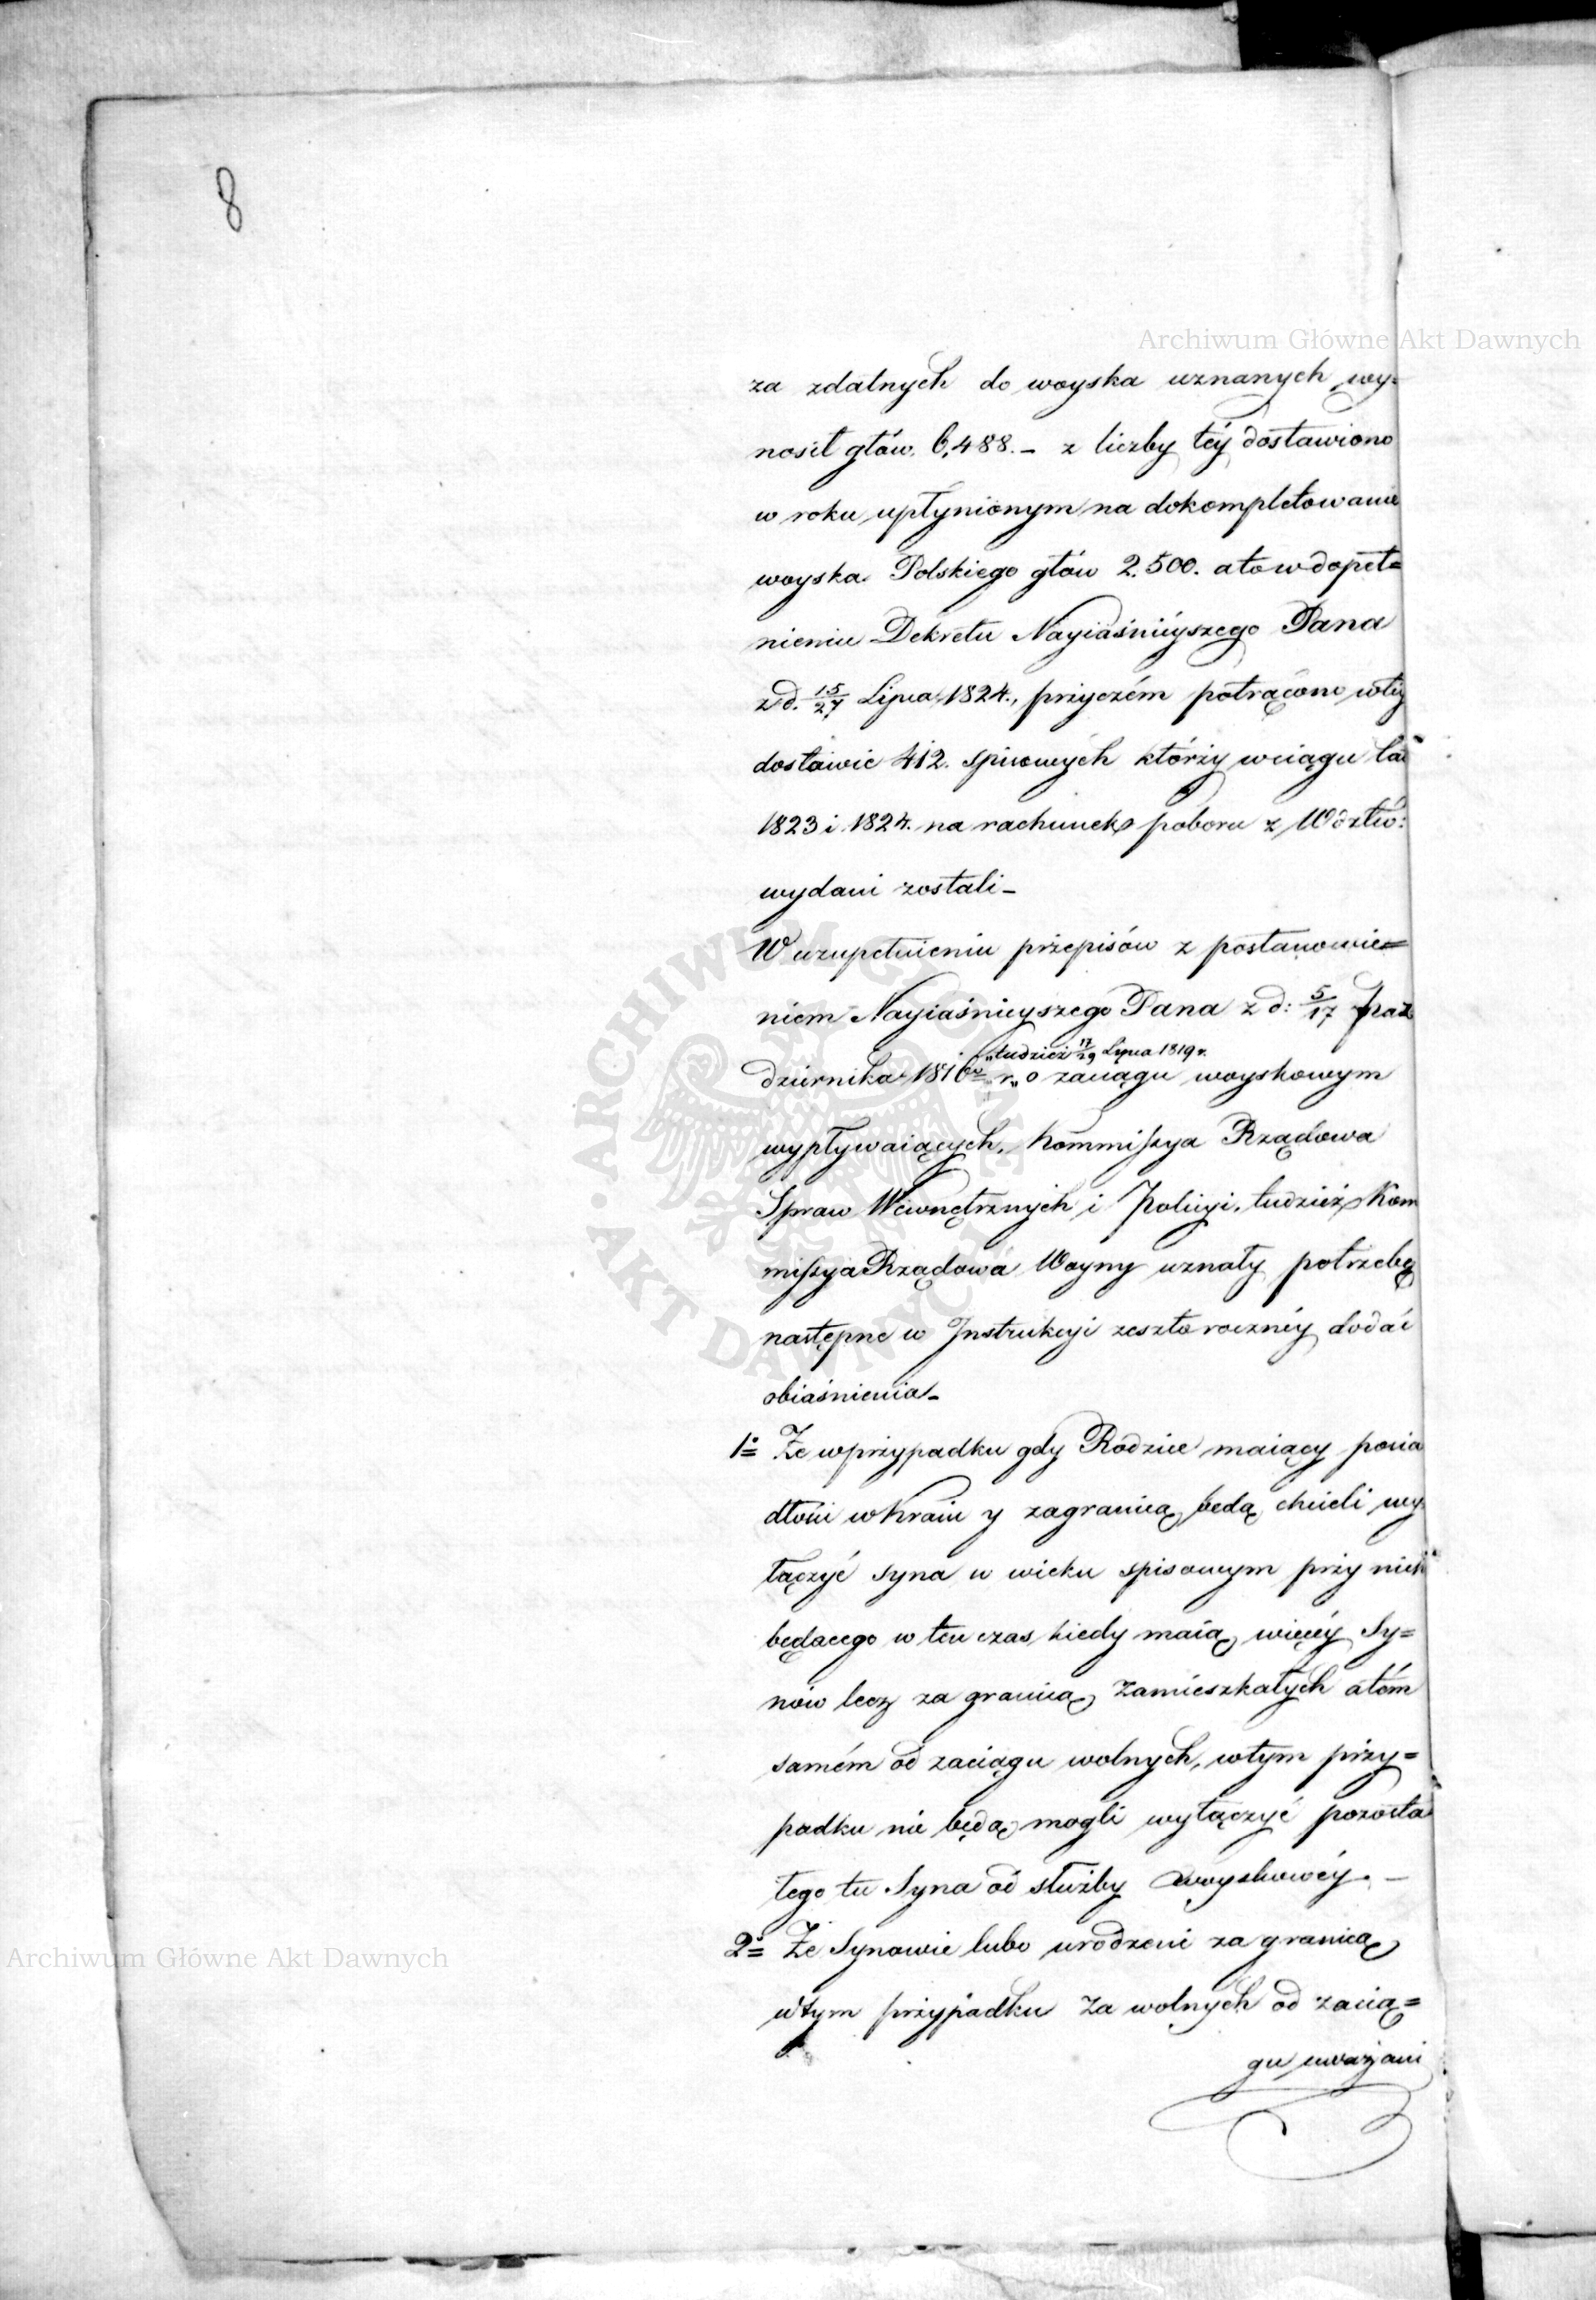 8
Archiwum Główne Akt Dawnych
za zdatnych do woyska uznanych wy=
nosił głów. 6,488.– z liczby téy dostawiono
w roku upłynionym na dokompletowanie
woyska Polskiego głów 2.500. a to w dopeł=
nieniu Dekretu Nayiaśnieyszego Pana
z d. 15/27 Lipca 1824., przyczém potrącono w téy
dostawie 412. spisowych którzy w ciągu lat
1823 i 1824. na rachunek poboru z Wdztw:
wydani zostali–
W uzupełnieniu przepisów z postanowie=
niem Nayiaśnieyszego Pana z d: 5/17 Paź
„tudzież 17/29 Lipca 1819 r.
dziernika 1816go r„ o zaciągu woyskowym
wypływaiących, Kommissya Rządowa
Spraw Wewnętrznych i Policyi, tudzież Kom
missya Rządowa Woyny uznały potrzebę
następne w Instrukcyi zeszłorocznéy dodać
obiaśnienia–
1o Że w przypadku gdy Rodzice maiący posia
dłości w Kraiu y zagranicą będą chcieli wy
łączyć syna w wieku spisowym przy nich
będącego w ten czas kiedy maią więcéy Sy=
nów lecz za granicą zamieszkałych a tém
samém od zaciągu wolnych, w tym przy=
padku nie będą mogli wyłączyć pozosta
łego tu Syna od służby woyskowéy. –
2o Że Synowie lubo urodzeni za granicą
w tym przypadku za wolnych od zacią=
gu uważani
Archiwum Główne Akt Dawnych
ARCHIWUM GŁÓWNE AKT DAWNYCH